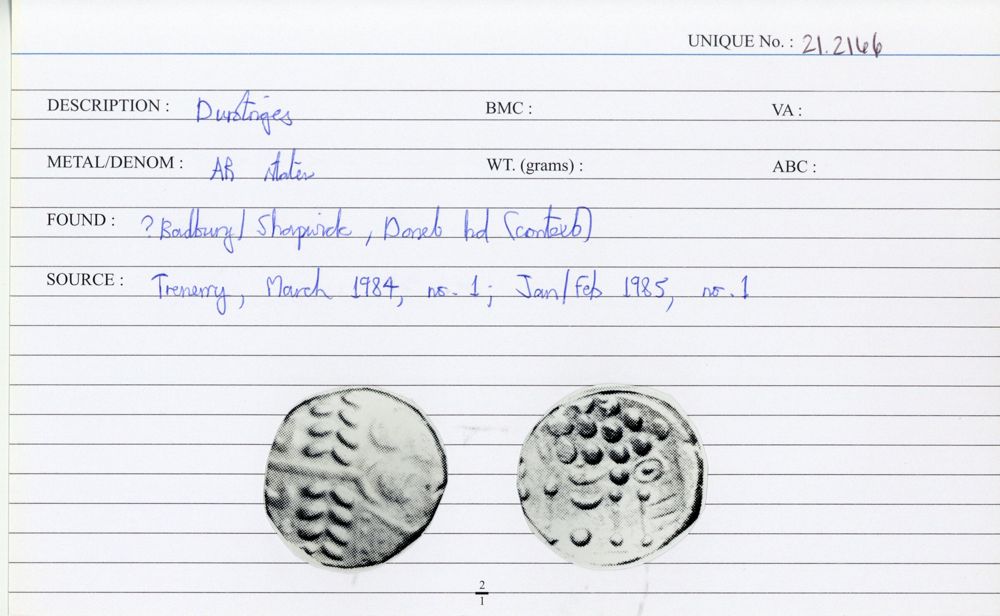 UNIQUE No. : 21.2166
DESCRIPTION : Durotriges BMC : VA :
METAL/DENOM : AR stater WT. (grams) : ABC :
FOUND : ? Badbury / Shapwick, Dorset hd (context)
SOURCE : Trenerry, March 1984, no. 1; Jan/Feb 1985, no. 1
2
1